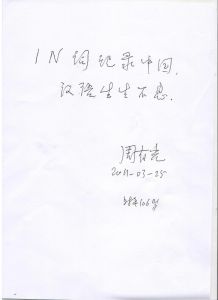 IN词纪录中国,
汉语生生不息.
周有光
2011-03-25
时年106岁